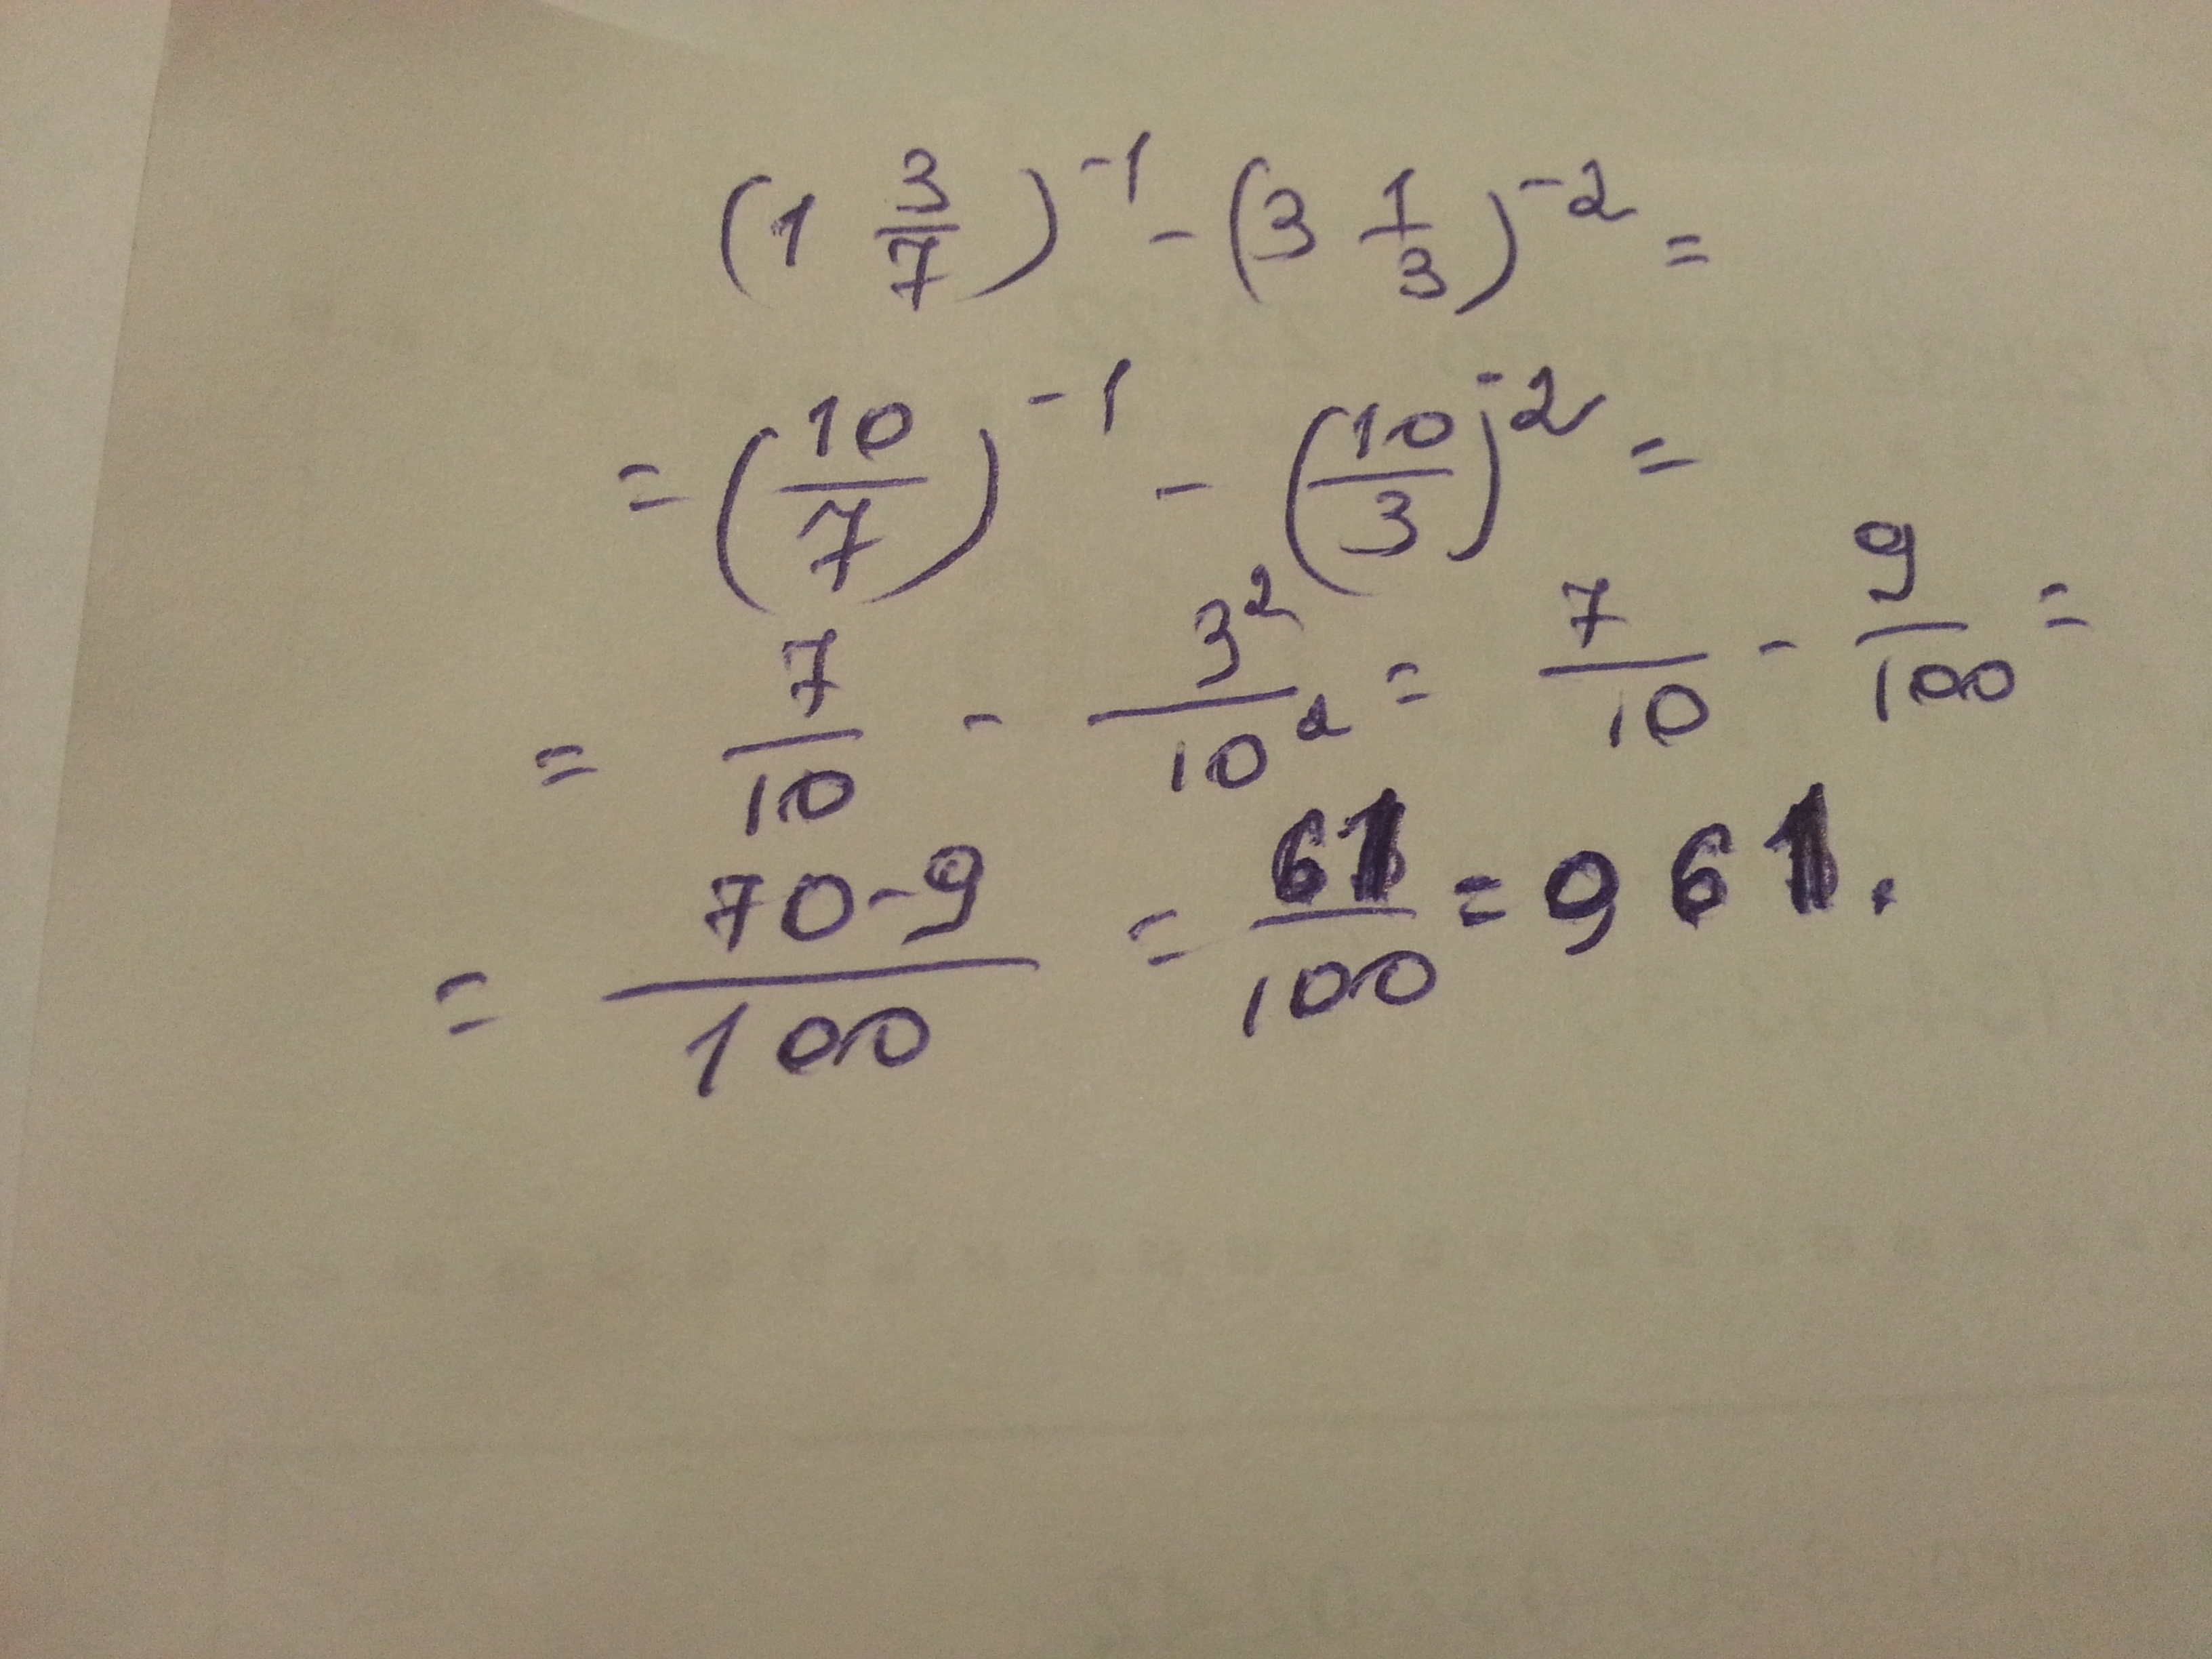 (1 3/7)^-1 - (3 1/3)^-2 =
= (10/7)^-1 - (10/3)^-2 =
= 7/10 - 3^2/10^2 = 7/10 - 9/100 =
= 70-9/100 = 61/100 = 0,61.